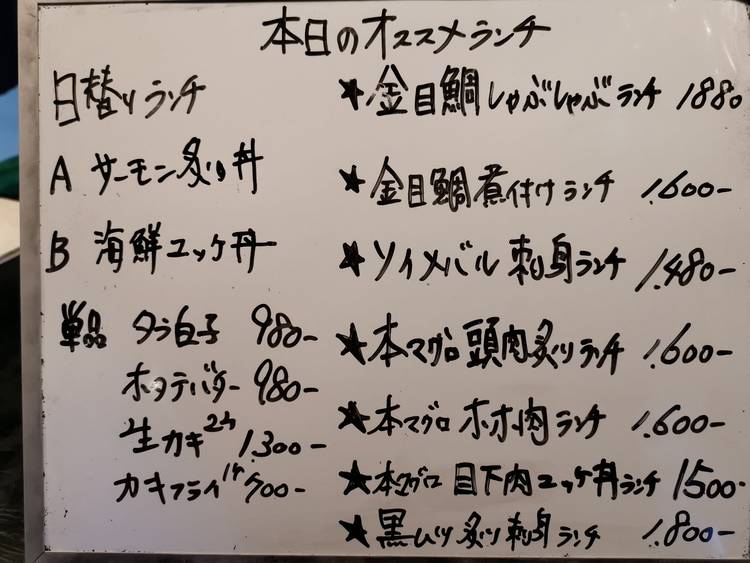 本日のオススメランチ
日替りランチ
A サーモン炙り丼
B 海鮮ユッケ丼
単品 タラ白子 980-
ホタテバター 980-
生カキ2ケ 1.300-
カキフライ1ケ 700-
★金目鯛しゃぶしゃぶランチ 1880
★金目鯛煮付けランチ 1.600-
★ソイメバル刺身ランチ 1.480-
★本マグロ頭肉炙りランチ 1.600-
★本マグロホホ肉ランチ 1.600-
★本マグロ目下肉ユッケ丼ランチ 1500-
★黒ムツ炙り刺身ランチ 1.800-